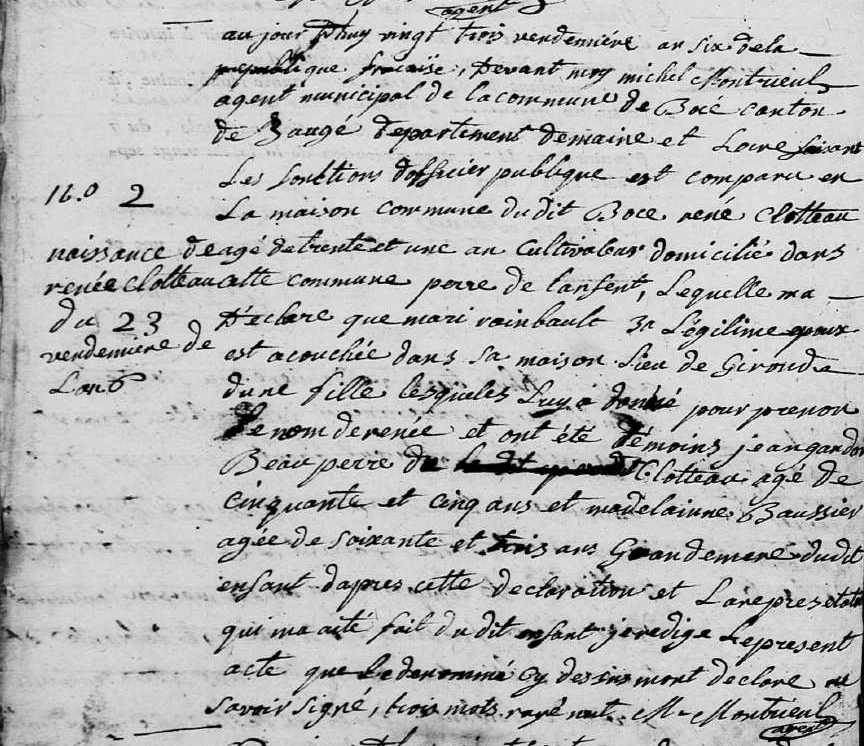 agent
au jour d'huy vingt trois vendemiére an six dela
republique francaise, Devant moy michel Montrieul
agent municipal de la commune de Bocé canton
de Baugé département demaine et Loire faisant
Les fonctions dofficier publique est comparu en
La maison commune du dit Boce rené Clotteau
agé detrente et une an Cultivateur domicilié dans
cette commune perre de lansent, Lequelle ma
Déclare que mari rainbault sa Légitime epoux
est acouchée dans sa maison Lieu de Giroude
dune fille lesqueles Luy a donné pour prenon
Le nom derenée et ont été témoins jean gandon
Beau perre de Clotteau agé de
cinquante et cinq ans et madelainne Baussier
agée de soixante et trois ans Grandemere dudit
enfant dapres cette declaration et
qui ma aité fait du dit enfant jeredige Le present
acte que Le denommé cy dessus mont declare ne
savoir signé, trois mots rayé nul. M. Montrieul
agent
16.0 2
naissance de
renée Clotteau
du 23
vendemiere de
Lan 6